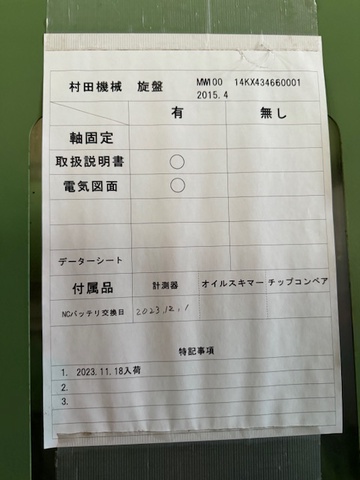 村田機械 旋盤 MW100 14KX434660001
2015.4
有 無し
軸固定
取扱説明書 ○
電気図面 ○
データーシート
付属品 計測器 オイルスキマー チップコンベア
NCバッテリ交換日 2023.12.1
特記事項
1. 2023.11.18入荷
2.
3.